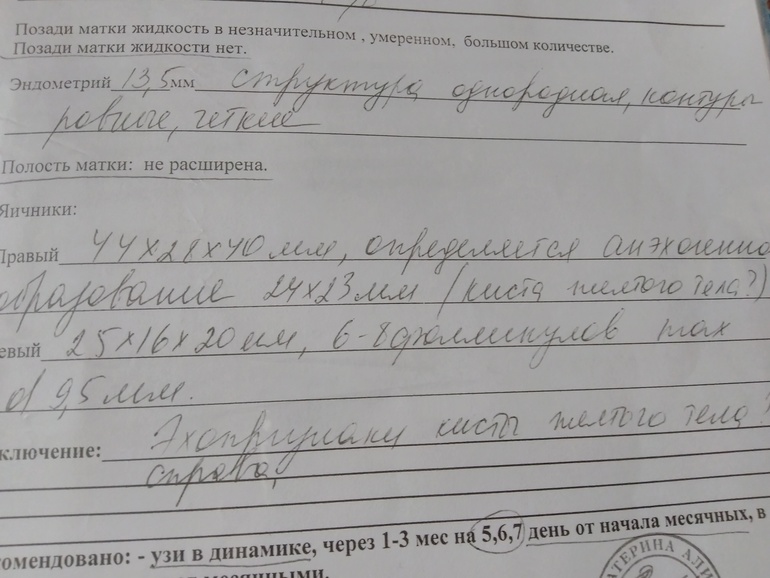 Позади матки жидкость в незначительном , умеренном, большом количестве.
Позади матки жидкости нет.
Эндометрий 13,5 мм структура однородная, контуры
ровные, четкие
Полость матки: не расширена.
Яичники:
Правый 44х28х40 мм, определяется анэхогенно
образование 24х23 мм (киста желтого тела?)
евый 25х16х20 мм, 6-8 фолликулов max
d 9,5 мм.
ключение: Эхопризнаки кисты желтого тела?
справа,
комендовано: - узи в динамике, через 1-3 мес на 5,6,7 день от начала месячных, в
месячными.
АТЕРИНА АЛИ